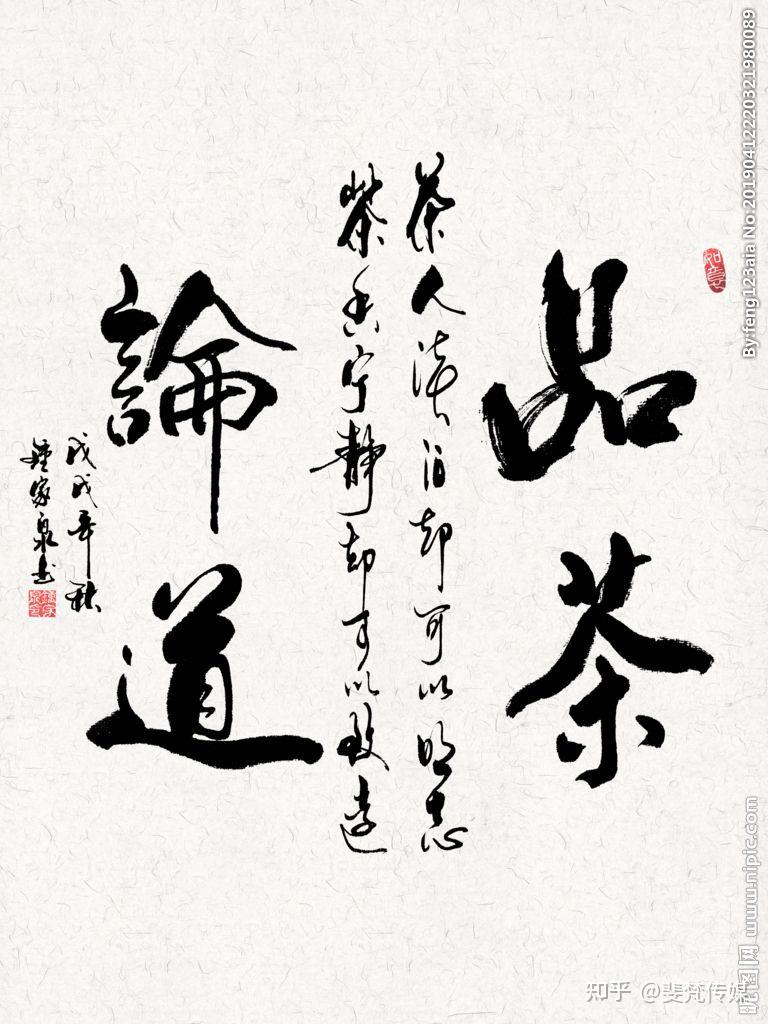 品茶
茶人淡泊却可以明志
茶香宁静却可以致远
論道
戊戌年秋
鍾家泉书
如意
By:feng123aia No:20190412220321980089
昵图网 www.nipic.com
知乎 @斐梵传媒